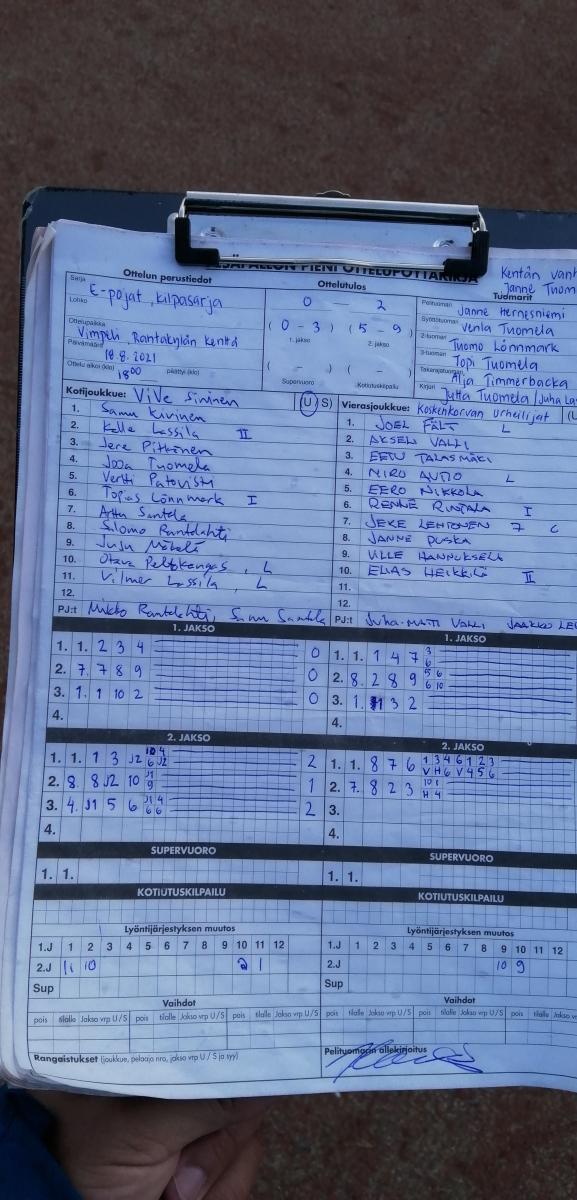 PESÄPALLON PIENI OTTELUPÖYTÄKIRJA
Kentän vanh
Janne Tuom
Ottelun perustiedot
Ottelutulos
Tuomarit
Sarja E-pojat, kilpasarja
Lohko
Ottelupaikka Vimpeli, Rantakylän kenttä
Päivämäärä 18.8.2021
Ottelu alkoi (klo) 18:00 päättyi (klo)
0 - 2
( 0 - 3 ) ( 5 - 9 )
1. jakso 2. jakso
( - ) ( - )
Supervuoro Kotiutuskilpailu
Pelituomari Janne Hernesniemi
Syöttötuomari Venla Tuomela
2-tuomari Tuomo Lönnmark
3-tuomari Topi Tuomela
Takarajatuomari Alja Timmerbacka
Kirjuri Jutta Tuomela/Juha Las
Kotijoukkue: ViVe Sininen (U S)
1. Samu Kivinen
2. Kalle Lassila II
3. Jere Pitkänen
4. Jooa Tuomela
5. Vertti Patovisti
6. Topias Lönnmark I
7. Arttu Santala
8. Salomo Rantalahti
9. Juju Mäkelä
10. Otava Peltokangas, L
11. Vilmer Lassila, L
12.
PJ:t Mikko Rantalahti, Samu Santala
Vierasjoukkue: Koskenkorvan Urheilijat (U
1. JOEL FÄLT L
2. AKSELI VALLI
3. EETU TALASMÄKI
4. NIRO AUTIO L
5. EERO NIKKOLA
6. RENNE RINTALA I
7. JEKE LEHTONEN 7 C
8. JANNE PUSKA
9. VILLE HANNUKSELA
10. ELIAS HEIKKILÄ II
11.
12.
PJ:t JUHA-MATTI VALLI JAAKKO LEH
1. JAKSO
1. 1. 2 3 4 0
2. 7. 7 8 9 0
3. 1. 1 10 2 0
4.
1. JAKSO
1. 1. 1 4 7 3 6
2. 8. 2 8 9 5 6 6 10
3. 1. 3 2
4.
2. JAKSO
1. 1. 1 3 J2 10 4 6 J2 2
2. 8. 8 J2 10 J1 9 1
3. 4. J1 5 6 J1 4 6 6 2
4.
2. JAKSO
1. 1. 8 7 6 1 3 4 6 1 2 3 V H 6 V 4 5 6
2. 7. 8 2 3 10 1 H 4
3.
4.
SUPERVUORO
1. 1.
SUPERVUORO
1. 1.
KOTIUTUSKILPAILU
KOTIUTUSKILPAILU
Lyöntijärjestyksen muutos
1.J 1 2 3 4 5 6 7 8 9 10 11 12
2.J 11 10 2 1
Sup
Lyöntijärjestyksen muutos
1.J 1 2 3 4 5 6 7 8 9 10 11 12
2.J 10 9
Sup
Vaihdot
pois tilalle Jakso vrp U / S pois tilalle Jakso vrp U / S pois tilalle Jakso vrp U / S
Vaihdot
pois tilalle Jakso vrp U / S pois tilalle Jakso vrp U / S pois tilalle
Rangaistukset (joukkue, pelaaja nro, jakso vrp U / S ja syy)
Pelituomarin allekirjoitus